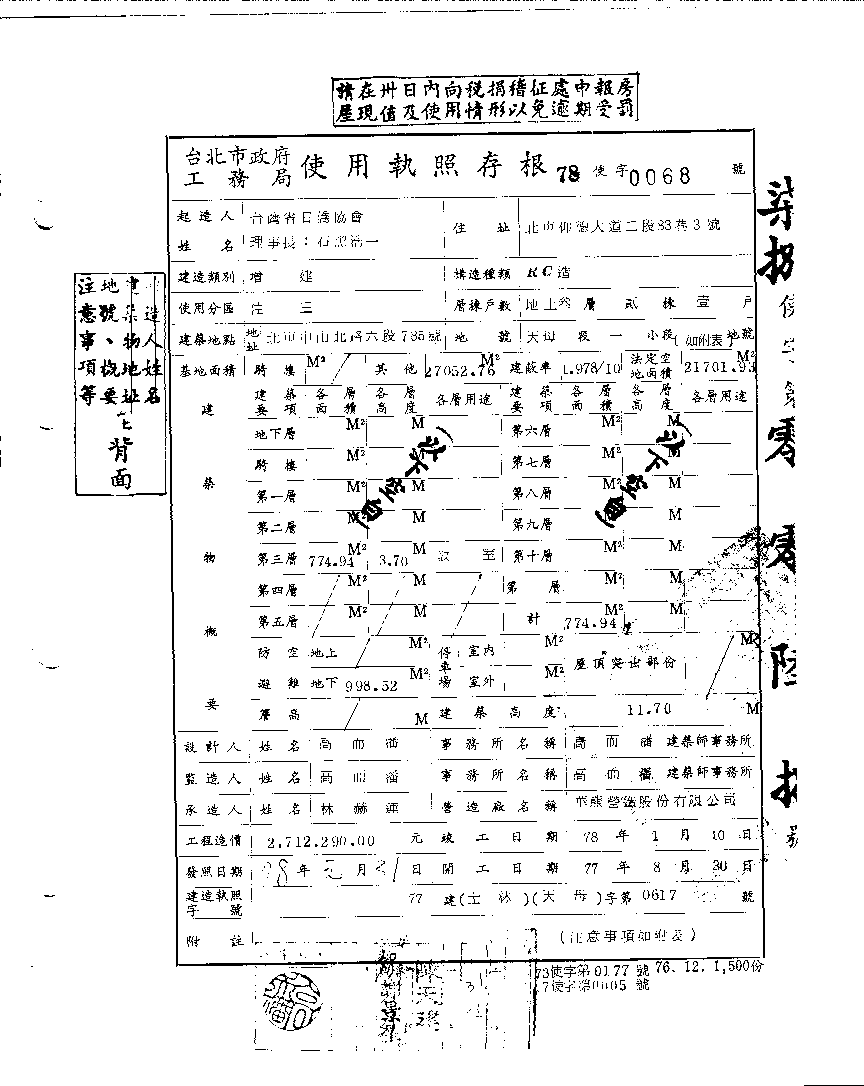 請在卅日內向稅捐稽征處申報房
屋現值及使用情形以免逾期受罰
台北市政府
工務局 使用執照存根 78 使字 0068 號
起造人 台灣省日僑協會 住址 北市仰德大道二段83巷3號
姓名 理事長：石黑浩一
建造類別 增建 構造種類 RC造
使用分區 住三 層棟戶數 地上 層貳棟壹戶
建築地點 地址 北市中山北路六段785號 地號 天母段一小段(如附表)地號
基地面積 騎樓 M² 其他 27052.76 M² 建蔽率 1.978/10 法定空地面積 21701.93 M²
建築物概要
建築要項 各層面積 各層高度 各層用途 建築要項 各層面積 各層高度 各層用途
地下層 M² M 第六層 M² M
騎樓 M² M 第七層 M² M
第一層 M² M 第八層 M² M
第二層 M² M 第九層 M² M
(以下空白) (以下空白)
第三層 774.94 M² 3.70 M 教室 第十層 M² M
第四層 M² M 第 層 M² M
第五層 M² M 計 774.94 M²
防空避難 地上 M² 停車場 室內 M² 屋頂突出部份 M²
地下 998.52 M² 室外 M²
簷高 M 建築高度 11.70 M
設計人 姓名 高而潘 事務所名稱 高而潘 建築師事務所
監造人 姓名 高而潘 事務所名稱 高而潘 建築師事務所
承造人 姓名 林赫 營造廠名稱 華熊營造股份有限公司
工程造價 2,712,290.00 元 竣工日期 78年1月10日
發照日期 78年元月21日 開工日期 77年8月30日
建造執照字號 77建(士林)(天母)字第0617號
附註 (注意事項如附表)
73使字第0177號 76.12.1,500份
使字第0005號
注意事項等
地號、概要
建築物地址
起造人姓名
背面
柒捌使字第零零陸拾 號